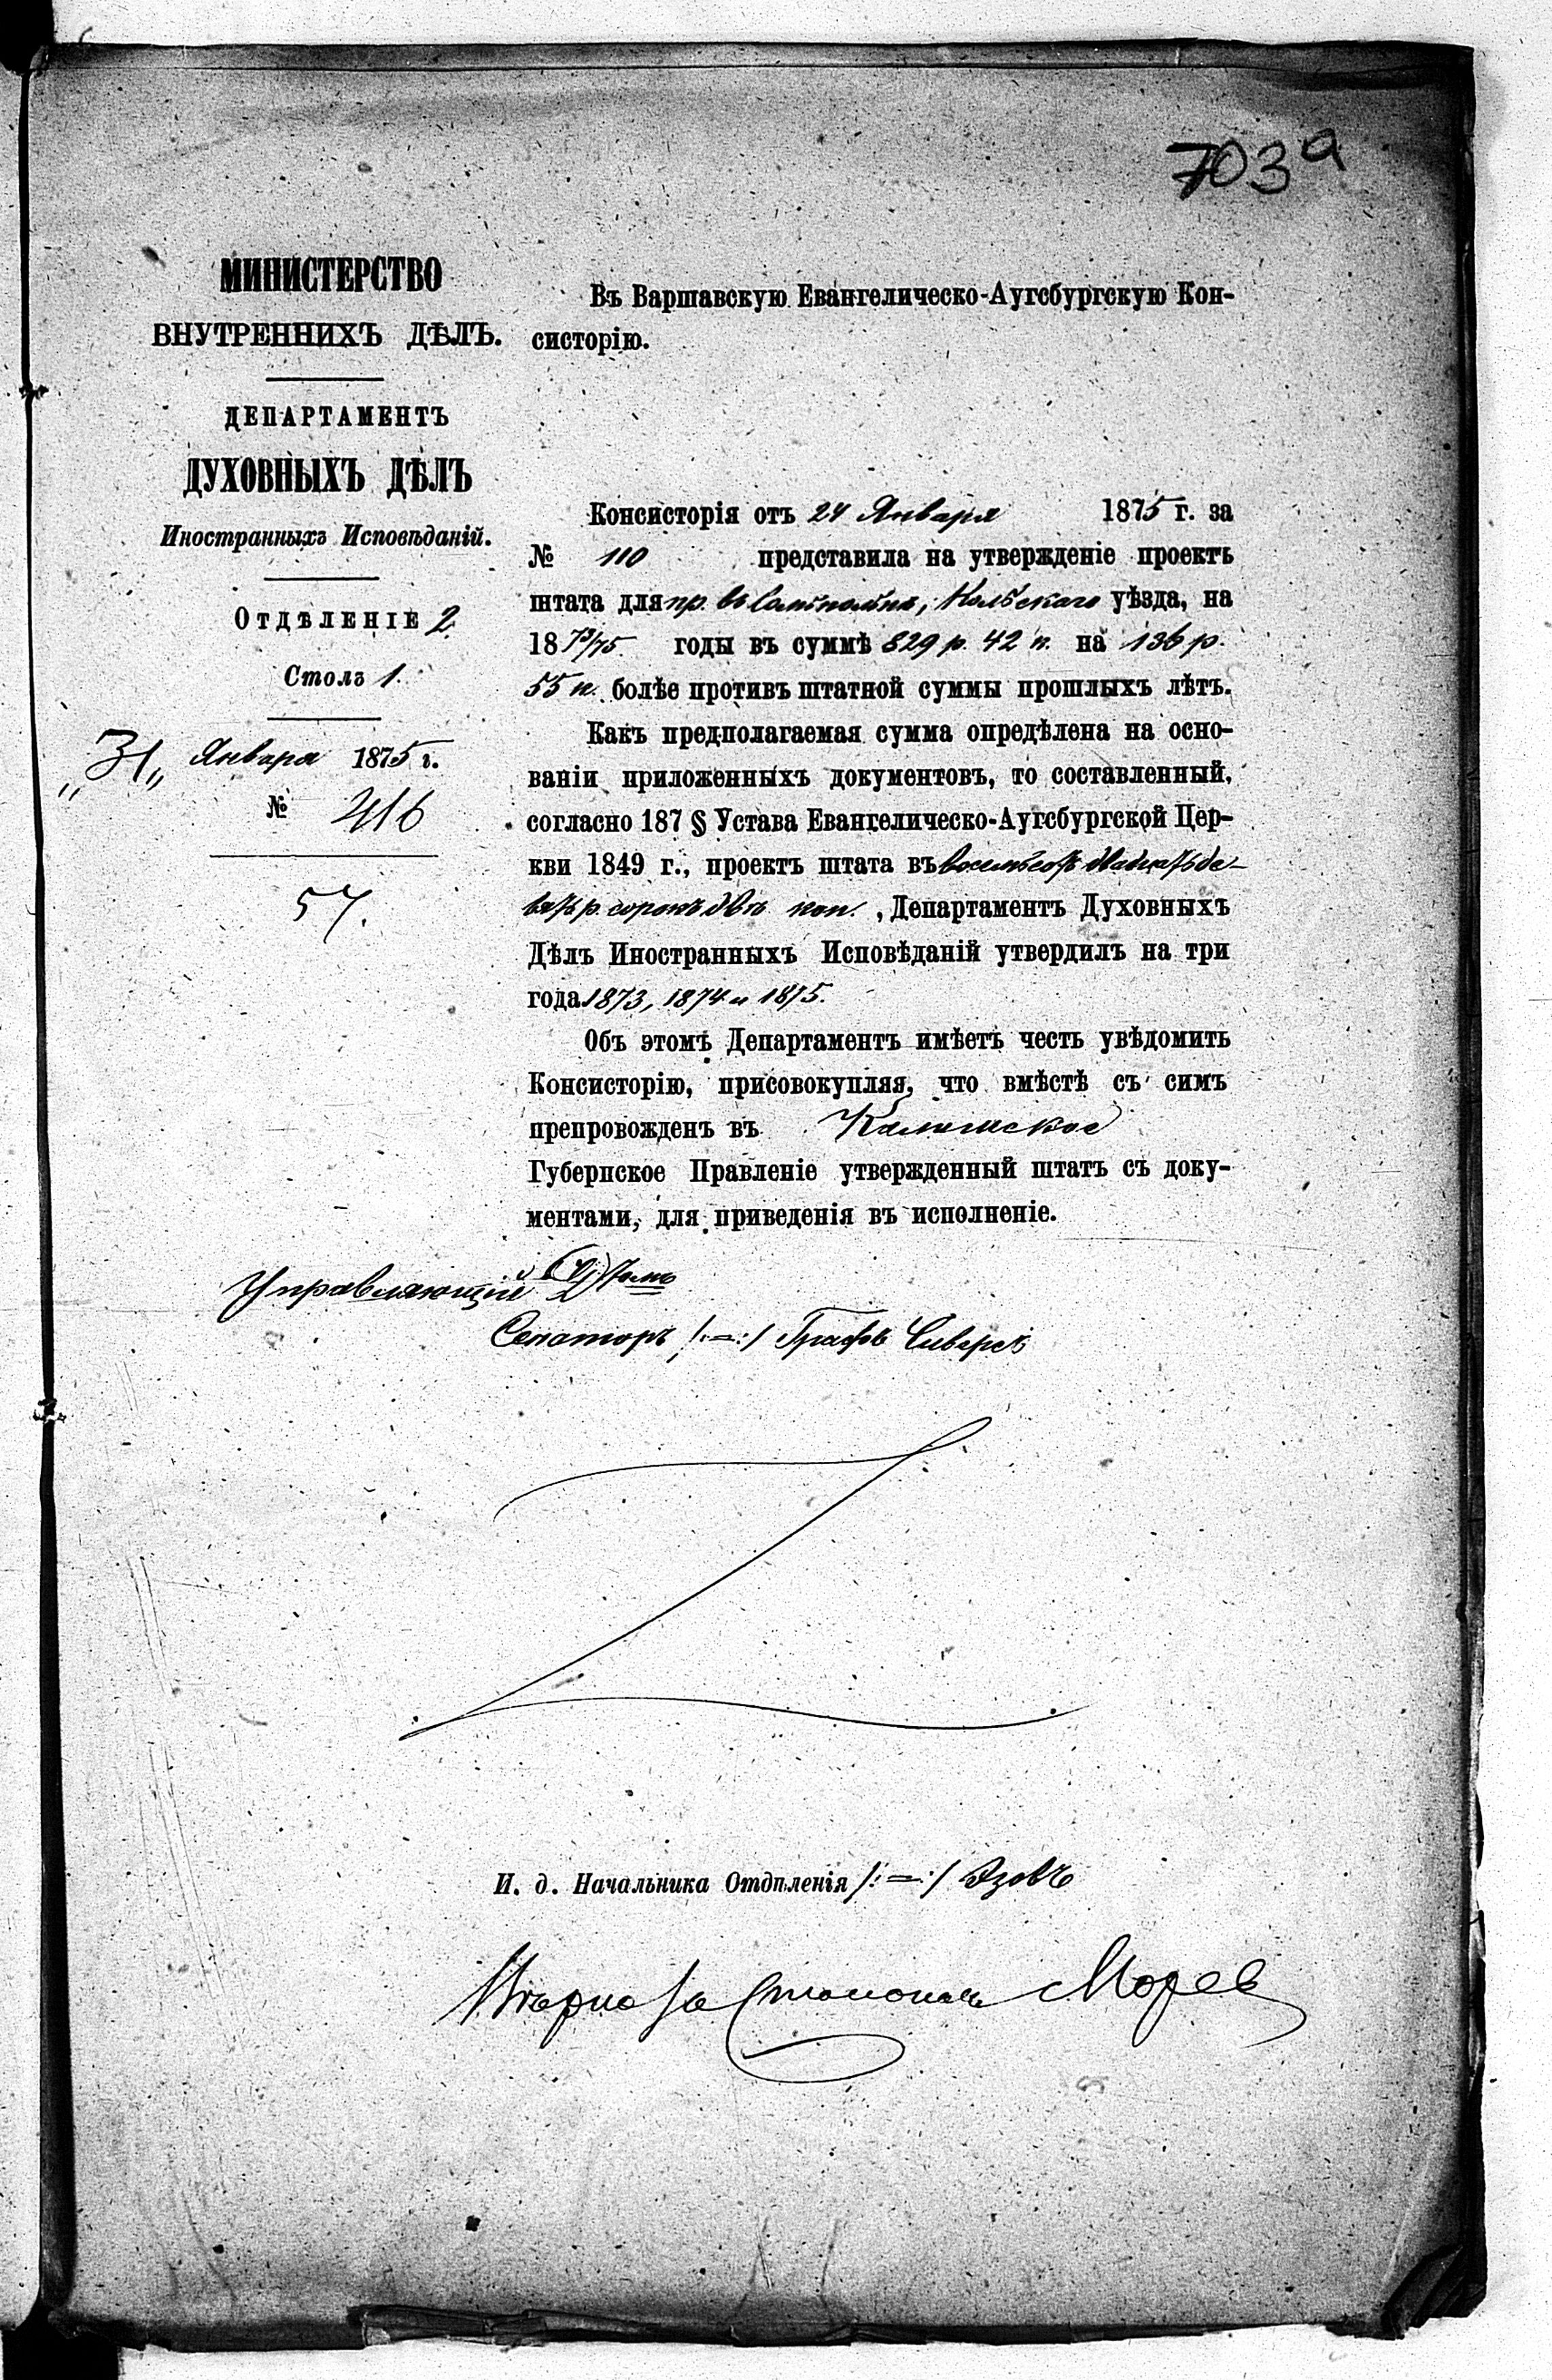 703а
МИНИСТЕРСТВО
ВНУТРЕННИХЪ ДѢЛЪ.
ДЕПАРТАМЕНТЪ
ДУХОВНЫХЪ ДѢЛЪ
Иностранныхъ Исповѣданій.
ОТДѢЛЕНІЕ 2.
Столъ 1.
„31„ Января 1875 г.
№ 416
57.
Въ Варшавскую Евангелическо-Аугсбургскую Кон-
систорію.
Консисторія отъ 24 Января 1875 г. за
№ 110 представила на утвержденіе проектъ
штата для пр. въ Сомпольнѣ, Кольскаго уѣзда, на
18 73/75 годы въ суммѣ 829 р. 42 к. на 136 р.
55 к. болѣе противъ штатной суммы прошлыхъ лѣтъ.
Какъ предполагаемая сумма опредѣлена на осно-
ваніи приложенныхъ документовъ, то составленный,
согласно 187 § Устава Евангелическо-Аугсбургской Цер-
кви 1849 г., проектъ штата въ восемьсотъ двадцать де-
вять р. сорокъ двѣ коп., Департаментъ Духовныхъ
Дѣлъ Иностранныхъ Исповѣданій утвердилъ на три
года 1873, 1874 и 1875.
Объ этомъ Департаментъ имѣетъ честь увѣдомить
Консисторію, присовокупляя, что вмѣстѣ съ симъ
препровожденъ въ Калишское
Губернское Правленіе утвержденный штатъ съ доку-
ментами, для приведенія въ исполненіе.
Управляющій
Сенаторъ, /:=:/ Графъ Сиверсъ
И. д. Начальника Отдѣленія /:=:/ Эзовъ
Вѣрно за Столонач. Морев